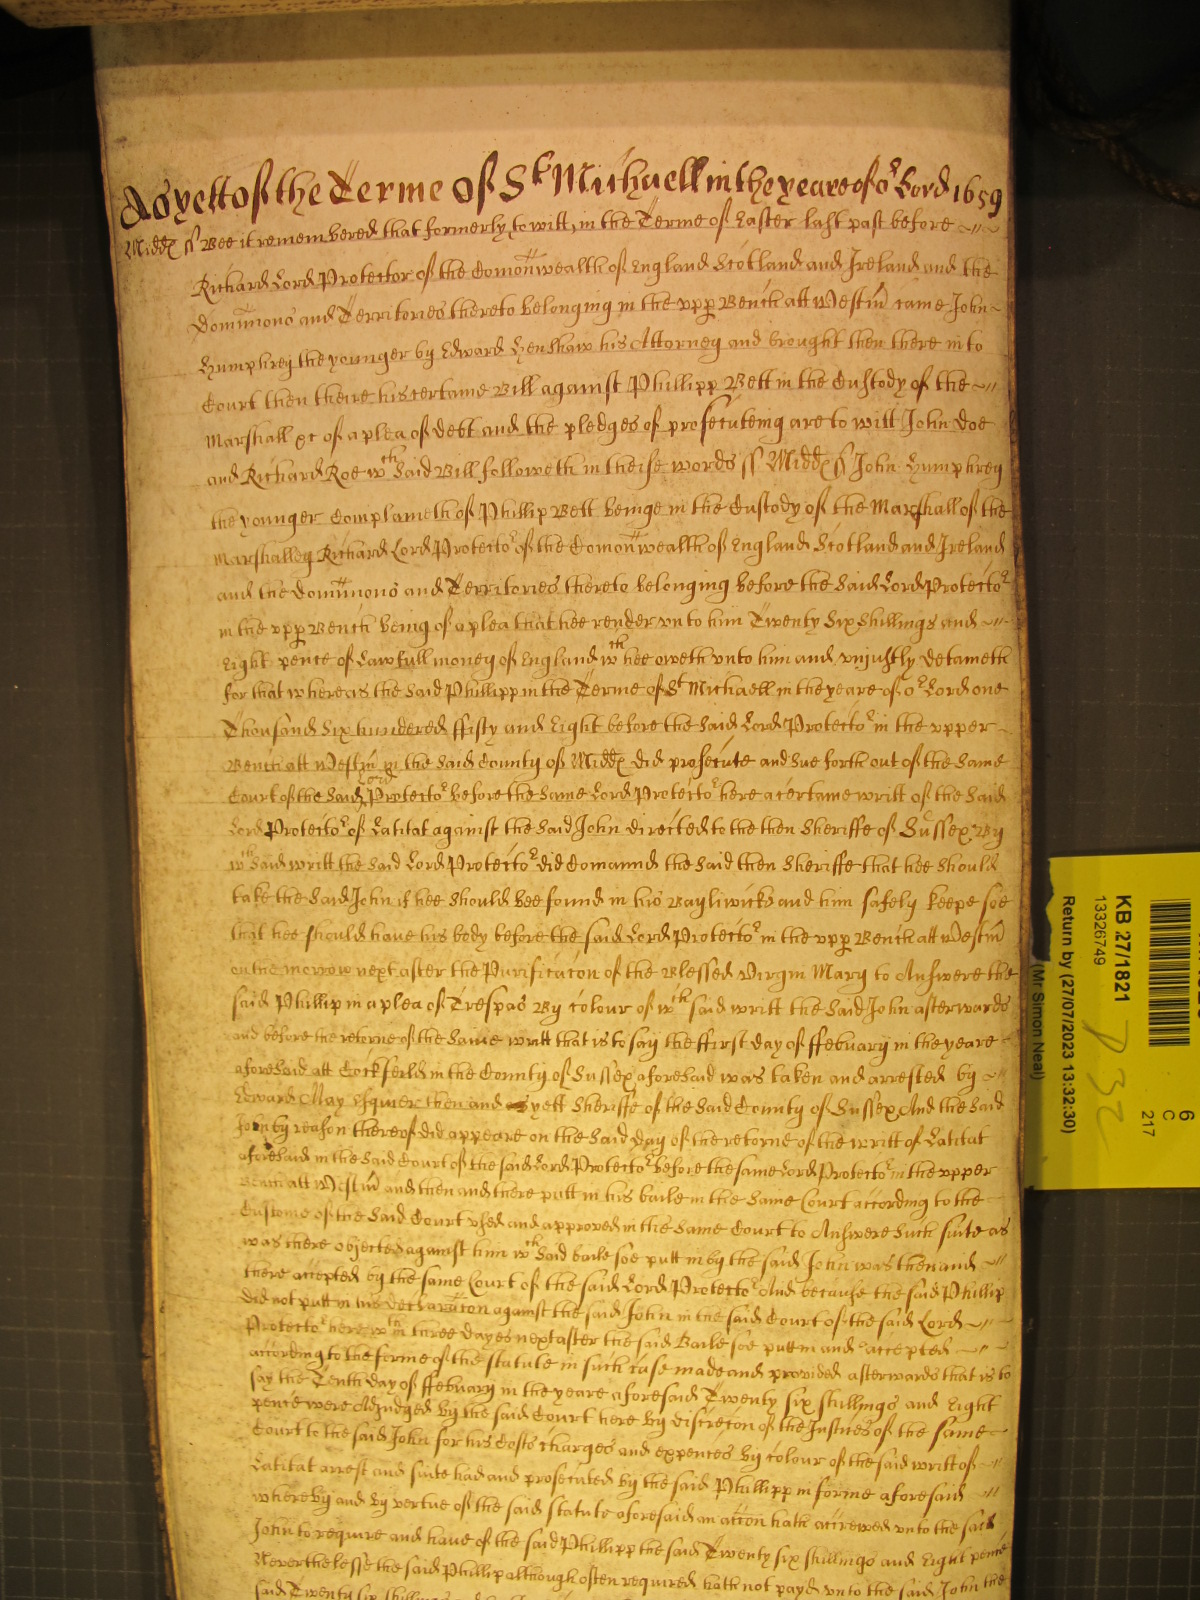 As yett of the Terme of St Michaell in the yeare of or Lord 1659
Middx ss Bee it remembered that formerly, to witt, in the Terme of Easter last past before
Richard Lord Protector of the Comonwealth of England Scotland and Ireland and the
Dominions and Territories thereto belonging in the upp Bench att Westm came John
Humphrey the younger by Edward Henshaw his Attorney and brought then there into
Court then there his certaine Bill against Phillipp Bett in the Custody of the
Marshall &c of a plea of debt and the pledges of prosecuteing are to witt John Doe
and Richard Roe wth said Bill followeth in theise words ss Middx ss John Humphrey
the younger Complaineth of Phillip Bett beinge in the Custody of the Marshall of the
Marshalley Richard Lord Protector of the Comonwealth of England Scotland and Ireland
and the Dominions and Territories thereto belonging before the said Lord Protector
in the upp Bench being of a plea that hee render unto him Twenty Six Shillings and
Eight pence of Lawfull money of England wch hee oweth unto him and unjustly detaineth
for that whereas the said Phillipp in the Terme of St Michaell in the yeare of or Lord one
Thousand Six hundered ffifty and Eight before the said Lord Protector in the upper
Bench att Westm in the said County of Middx did prosecute and sue forth out of the same
Court of the said Lord Protector before the same Lord Protector here a certaine writt of the said
Lord Protector of Latitat against the said John directed to the then Sheriffe of Sussex By
wch said writt the said Lord Protector did Comannd the said then Sheriffe that hee should
take the said John if hee should bee found in his Bayliwicke and him safely keepe soe
that hee should have his body before the said Lord Protector in the upp Bench att Westm
on the morrow next after the Purificacon of the Blessed Virgin Mary to Answere the
said Phillip in a plea of Trespas By colour of wch said writt the said John afterwards
and before the retorne of the same writt that is to say the ffirst day of ffebuary in the yeare
aforesaid att Cockfeild in the County of Sussex aforesaid was taken and arrested by
Edward May Esquier then and yett Sheriffe of the said County of Sussex And the said
John by reason thereof did appeare on the said day of the retorne of the writt of Latitat
aforesaid in the said Court of the said Lord Protector before the same Lord Protector in the upper
Bench att Westm and then and there putt in his baile in the same Court according to the
Custome of the said Court used and approved in the same Court to Answere such suite as
was there objected against him wch said baile soe putt in by the said John was then and
there accepted by the same Court of the said Lord Protector And because the said Phillip
did not putt in his declaracon against the said John in the said Court of the said Lord
Protector here wthin three dayes next after the said Baile soe putt in and accepted
according to the forme of the statute in such case made and provided afterwards that is to
say the Tenth day of ffebuary in the yeare aforesaid Twenty six shillings and Eight
pence were Adjudged by the said Court here by discrecon of the Justices of the same
Court to the said John for his Costs charges and expences by colour of the said writt of
Latitat arrest and suite had and prosecuted by the said Phillipp in forme aforesaid
whereby and by vertue of the said statute aforesaid an accon hath accrewed unto the said
John to require and have of the said Phillipp the said Twenty six shillings and Eight pence
Neverthelesse the said Phillip although often required hath not payd unto the said John the
said Twenty six shillings
6
C
217
KB 27/1821
13326749
P 32
Return by (27/07/2023 13:32:30)
(Mr Simon Neal)